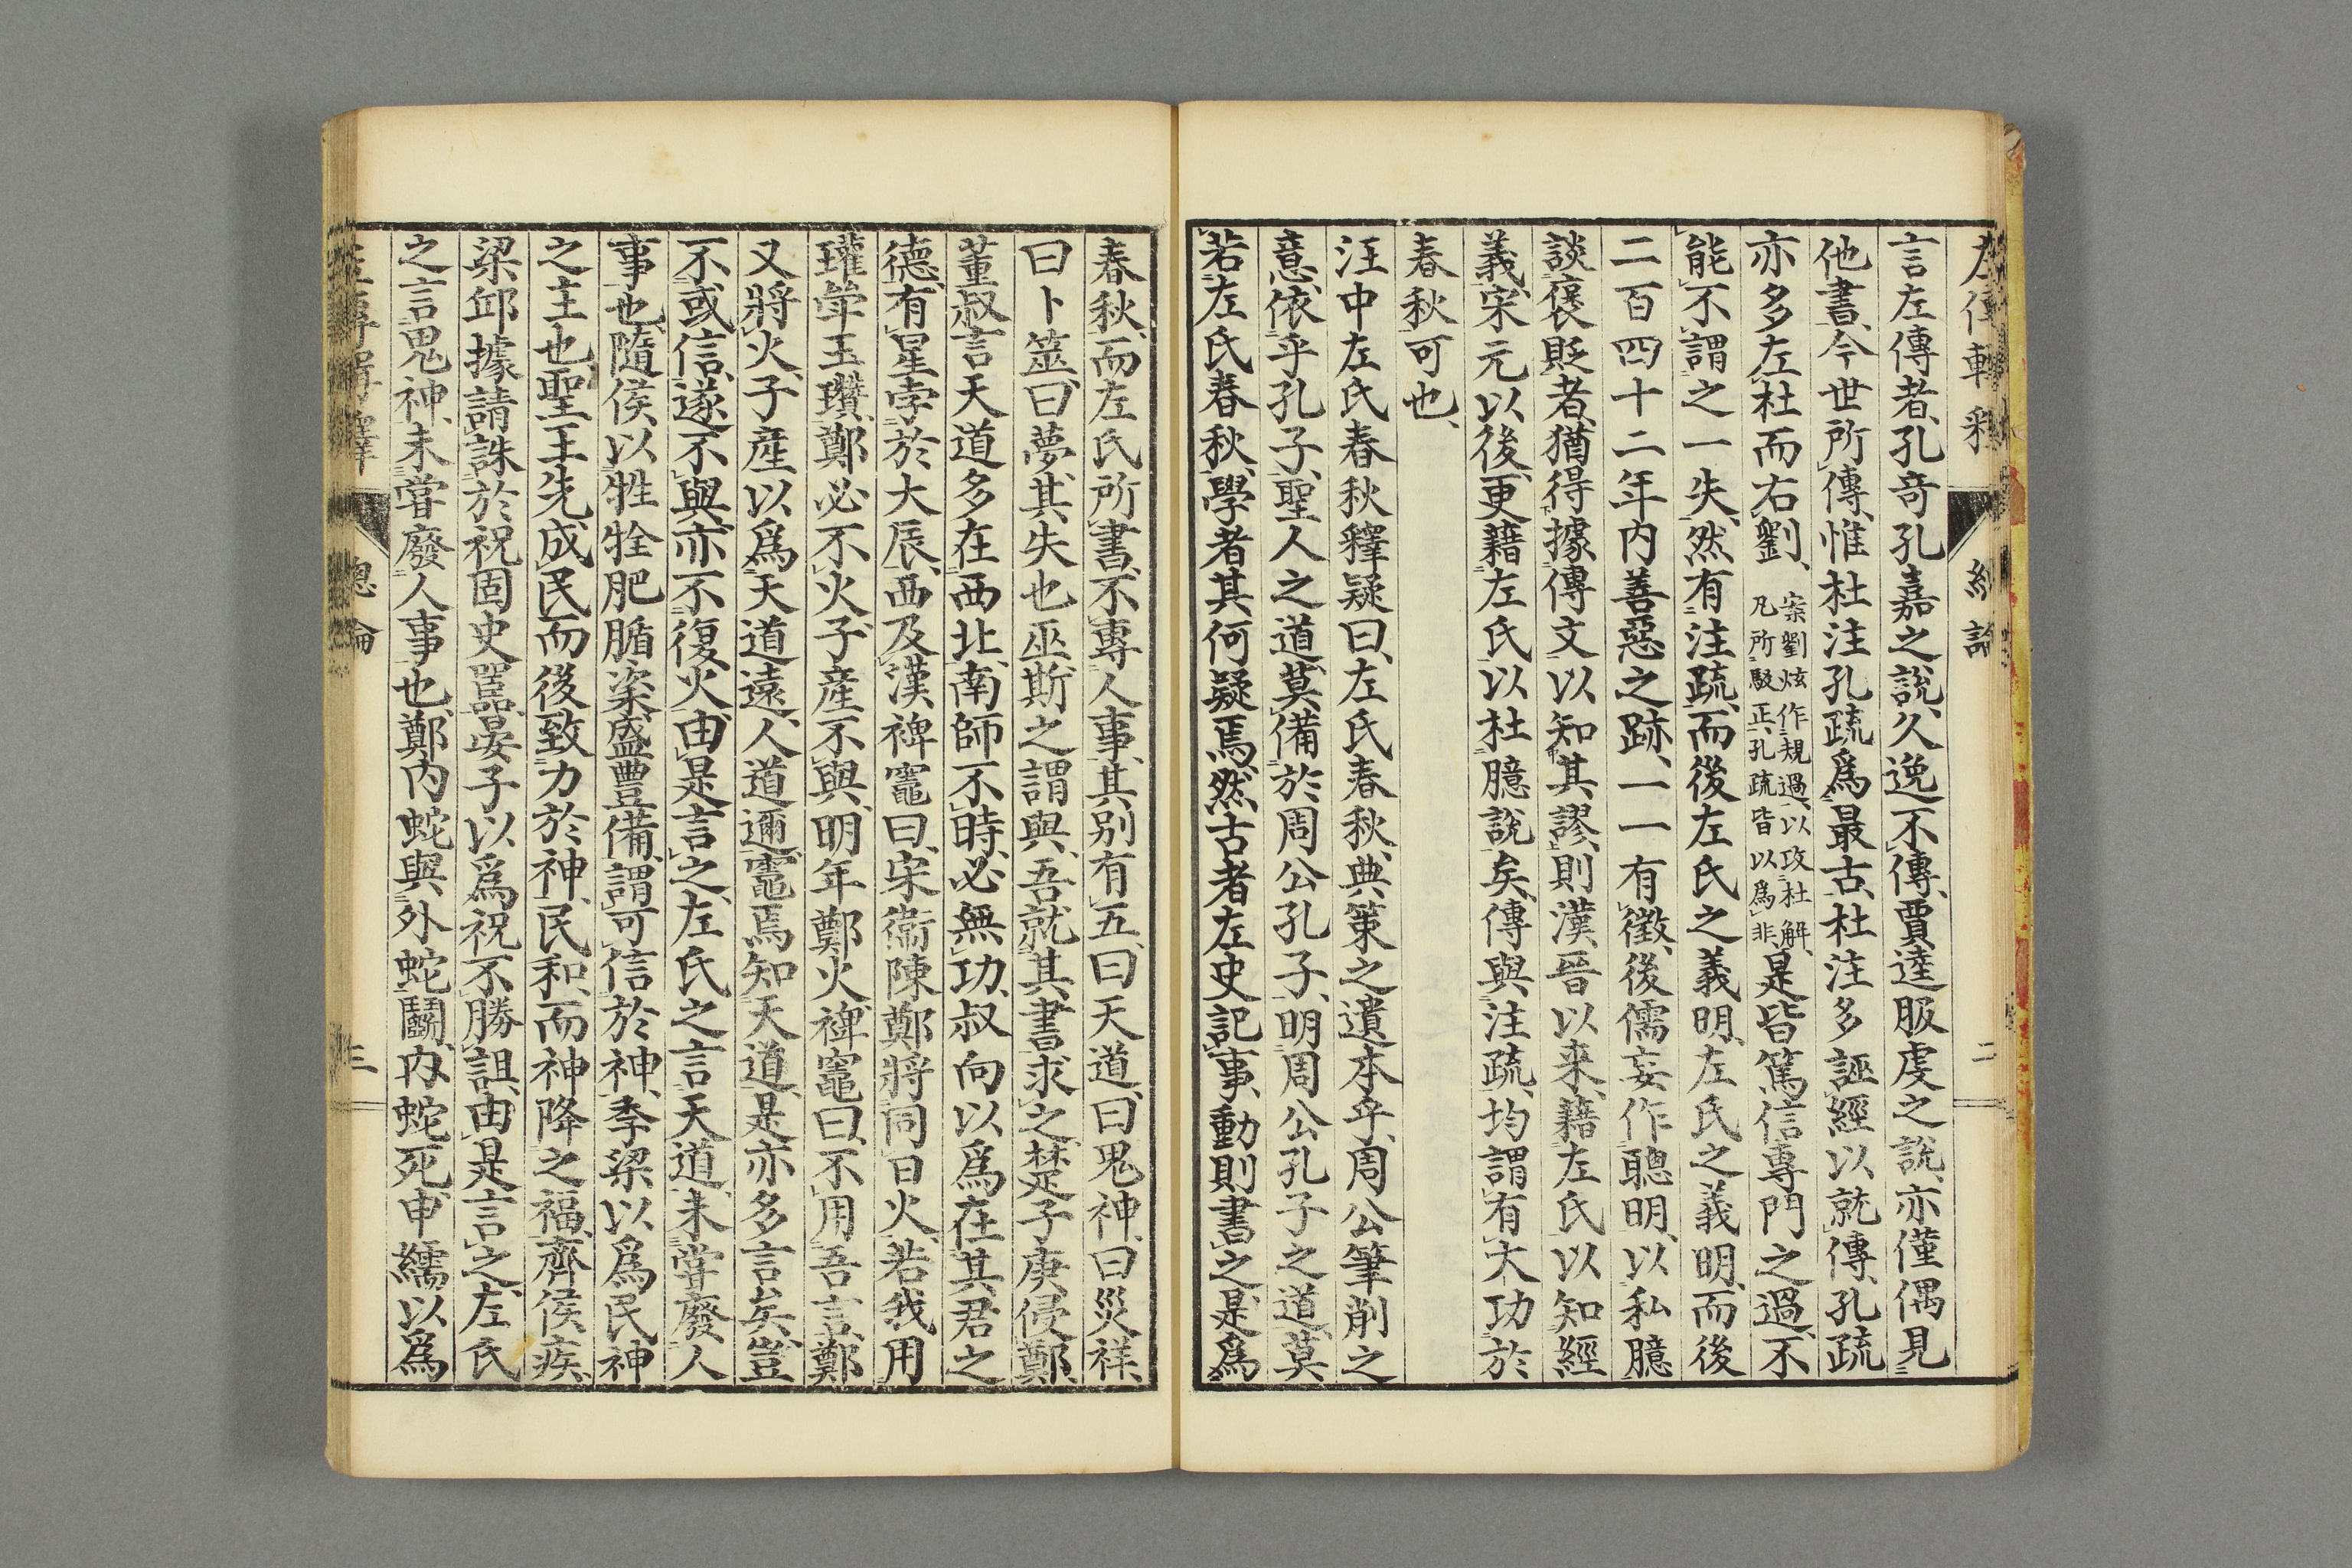 言左傳者、孔奇孔嘉之說、久逸不傳、賈逵服虔之說、亦僅偶見
他書、今世所傳、惟杜注孔疏爲最古、杜注多誣經以就傳、孔疏
亦多左杜而右劉、
案劉炫作規過、以攻杜解、
凡所駁正、孔疏皆以爲非、
是皆篤信專門之過、不
能不謂之一失、然有注疏、而後左氏之義明、左氏之義明、而後
二百四十二年內善惡之跡、一一有徵、後儒妄作聰明、以私臆
談褒貶者、猶得據傳文以知其謬、則漢晉以來、藉左氏以知經
義、宋元以後、更藉左氏以杜臆說矣、傳與注疏、均謂有大功於
春秋可也、
汪中左氏春秋釋疑曰、左氏春秋、典策之遺本乎、周公筆削之
意、依乎孔子、聖人之道、莫備於周公孔子、明周公孔子之道、莫
若左氏春秋、學者其何疑焉、然古者左史記事、動則書之、是爲
春秋、而左氏所書、不專人事、其別有五、曰天道、曰鬼神、曰災祥、
曰卜筮、曰夢、其失也巫、斯之謂與、吾就其書求之、楚子庚侵鄭、
董叔言天道多在西北、南師不時、必無功、叔向以爲在其君之
德、有星孛於大辰、西及漢、裨竈曰、宋衞陳鄭將同日火、若我用
瓘斚玉瓚、鄭必不火、子產不與、明年鄭火、裨竈曰、不用吾言、鄭
又將火、子產以爲天道遠、人道邇、竈焉知天道、是亦多言矣、豈
不或信、遂不與、亦不復火、由是言之、左氏之言天道、未嘗廢人
事也、隨侯以牲牷肥腯粢盛豐備、謂可信於神、季梁以爲民神
之主也、聖王先成民、而後致力於神、民和、而神降之福、齊侯疾、
梁邱據請誅於祝固史嚚、晏子以爲祝不勝詛、由是言之、左氏
之言鬼神、未嘗廢人事也、鄭內蛇與外蛇鬭、內蛇死、申繻以爲
總論
三